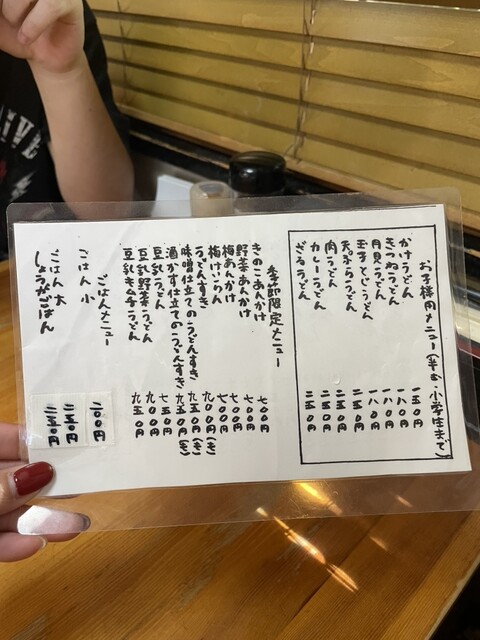 お子様用メニュー(半玉・小学生まで)
かけうどん 一五〇円
きつねうどん 一八〇円
月見うどん 一八〇円
玉子とじうどん 一八〇円
天ぷらうどん 二五〇円
肉うどん 二五〇円
カレーうどん 二五〇円
ざるうどん 二五〇円
季節限定メニュー
きのこあんかけ 七〇〇円
野菜あんかけ 七〇〇円
梅あんかけ 七〇〇円
梅けいらん 七〇〇円
うどんすき 九〇〇円(き)
味噌仕立てのうどんすき 九五〇円(き)
酒かす仕立てのうどんすき 九五〇円(き)
豆乳うどん 七五〇円
豆乳野菜うどん 九〇〇円
豆乳キムチうどん 九五〇円
ごはんメニュー
ごはん 小
ごはん 大
しょうがごはん